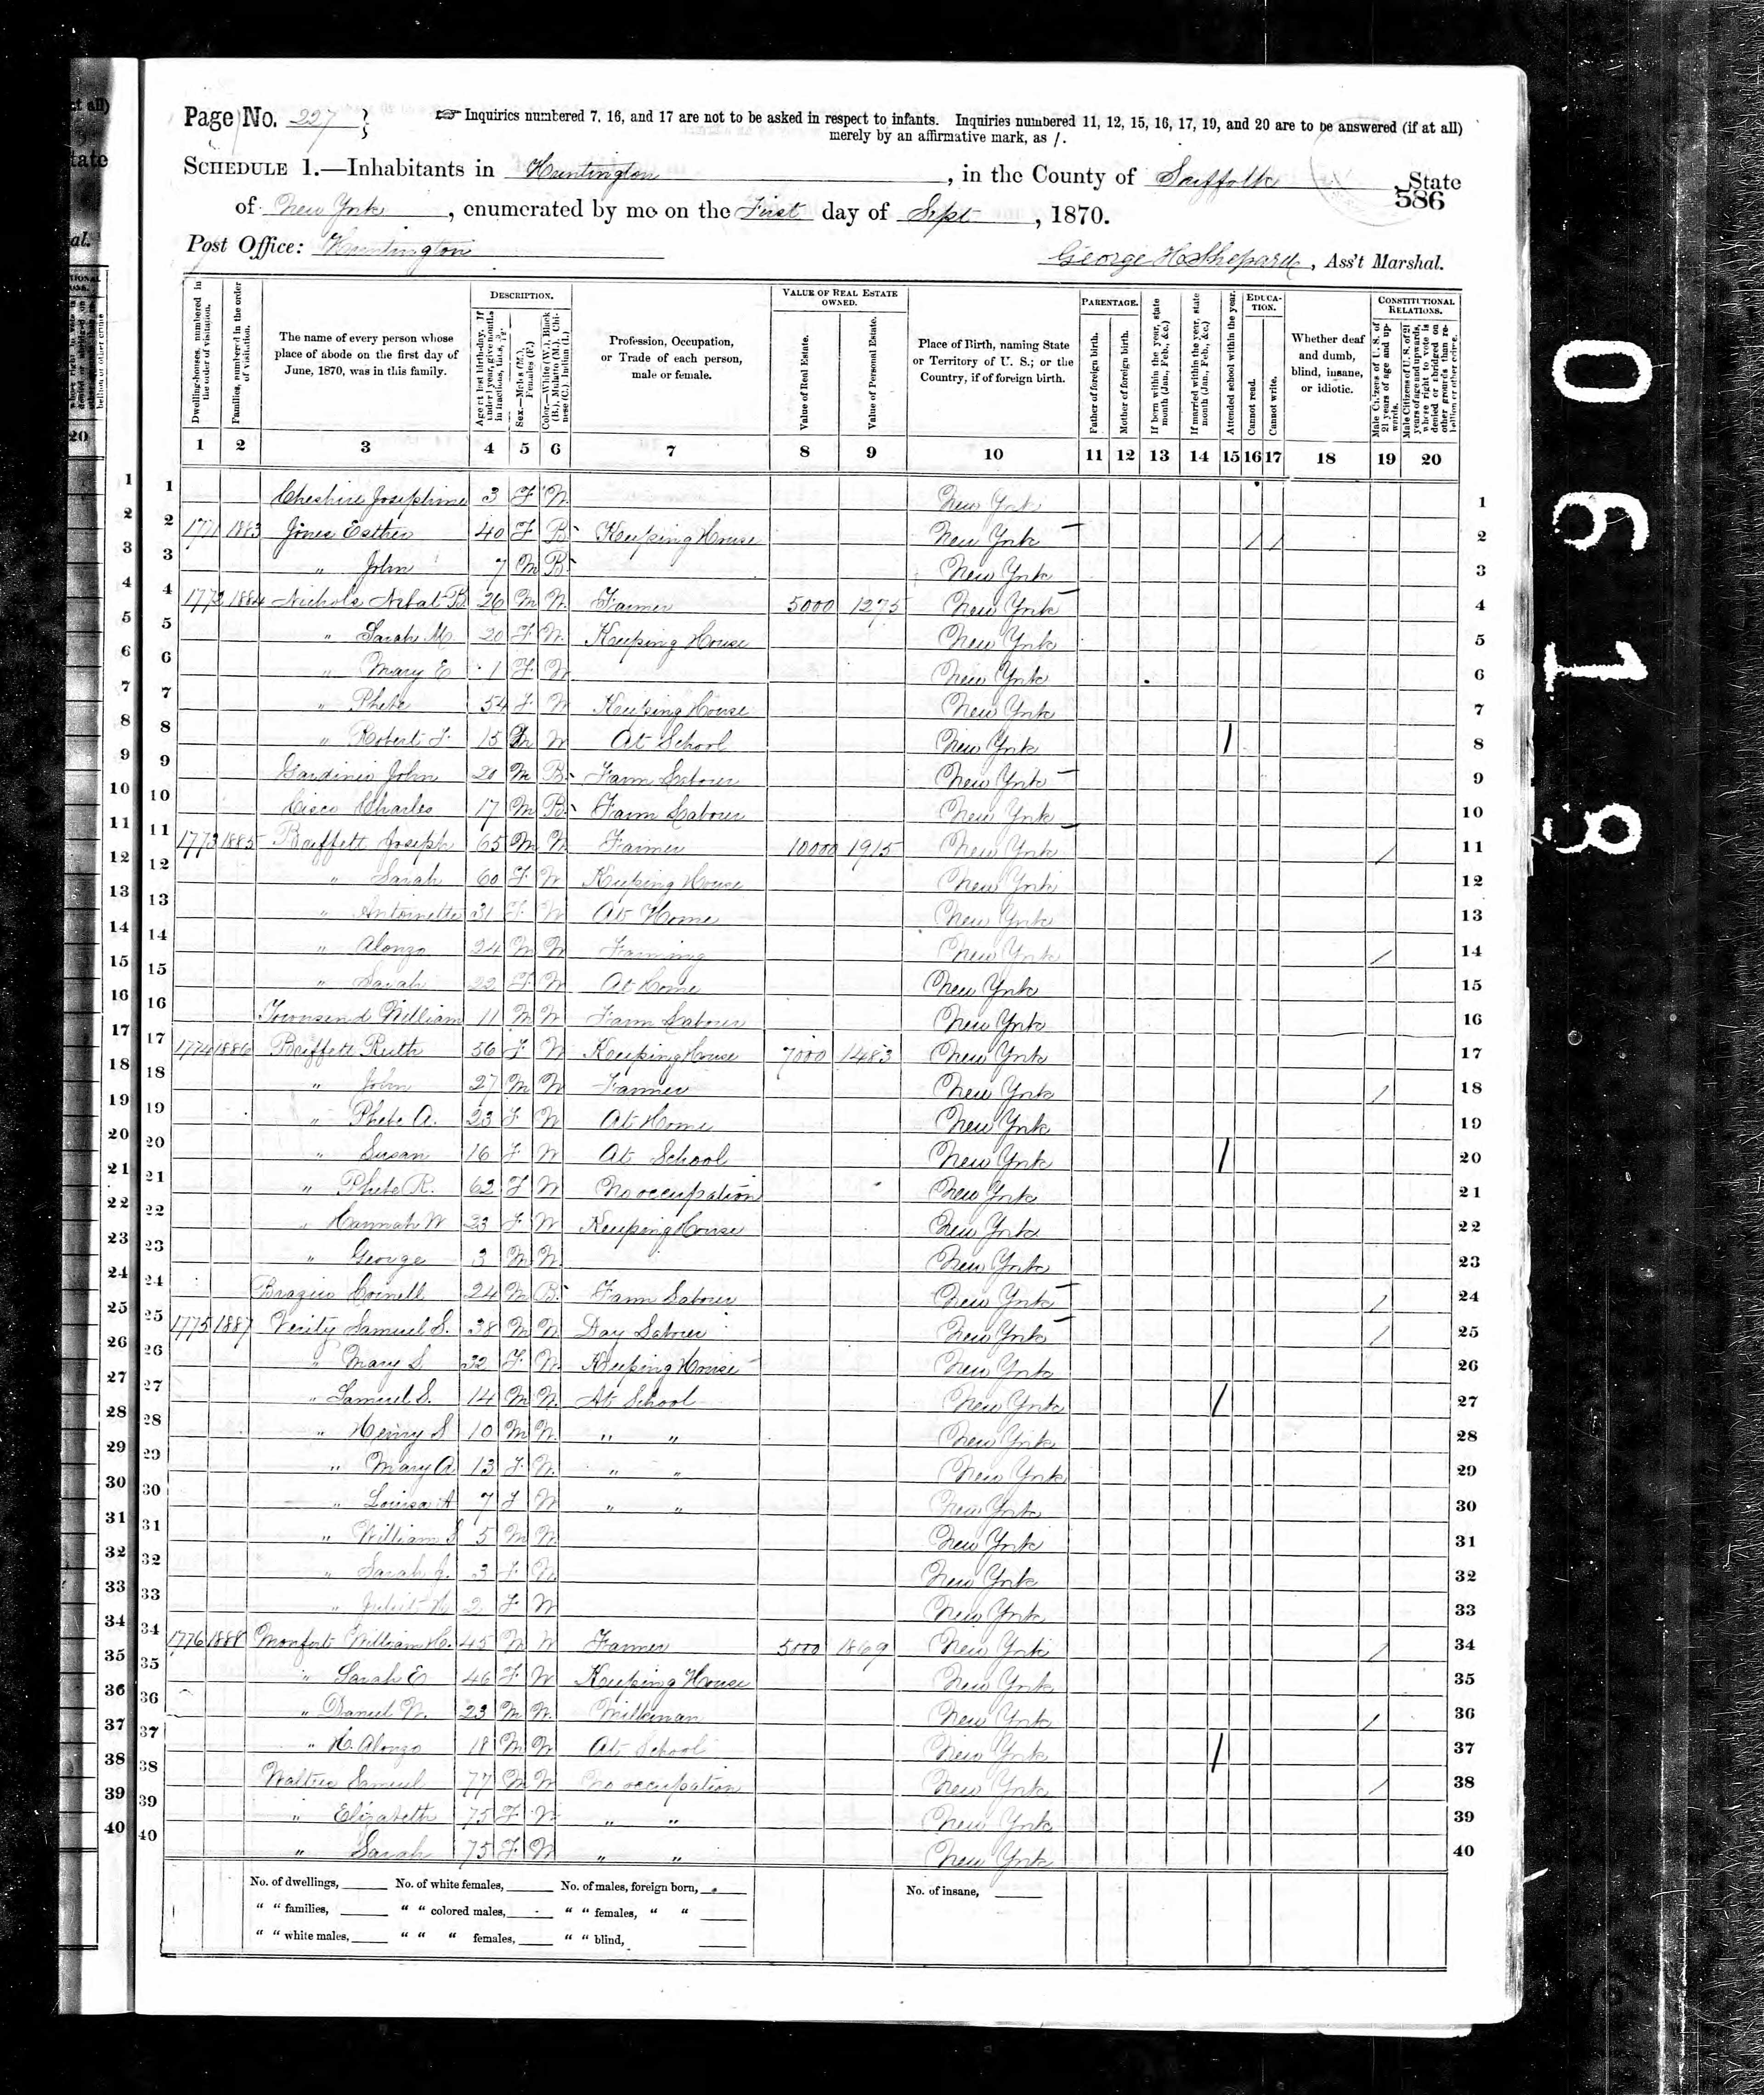 Page No. 227
☞ Inquiries numbered 7, 16, and 17 are not to be asked in respect to infants. Inquiries numbered 11, 12, 15, 16, 17, 19, and 20 are to be answered (if at all)
merely by an affirmative mark, as /.
SCHEDULE 1.—Inhabitants in Huntington, in the County of Suffolk, State
586
of New York, enumerated by me on the First day of Sept, 1870.
Post Office: Huntington
George H Shepard, Ass't Marshal.
Dwelling-houses, numbered in the order of visitation.
Families, numbered in the order of visitation.
The name of every person whose place of abode on the first day of June, 1870, was in this family.
DESCRIPTION.
Age at last birth-day. If under 1 year, give months in fractions, thus, 3/12
Sex.—Males (M.), Females (F.)
Color.—White (W.), Black (B.), Mulatto (M.), Chinese (C.), Indian (I.)
Profession, Occupation, or Trade of each person, male or female.
VALUE OF REAL ESTATE OWNED.
Value of Real Estate.
Value of Personal Estate.
Place of Birth, naming State or Territory of U. S.; or the Country, if of foreign birth.
PARENTAGE.
Father of foreign birth.
Mother of foreign birth.
If born within the year, state month (Jan., Feb., &c.)
If married within the year, state month (Jan., Feb., &c.)
Attended school within the year.
EDUCATION.
Cannot read.
Cannot write.
Whether deaf and dumb, blind, insane, or idiotic.
CONSTITUTIONAL RELATIONS.
Male Citizens of U. S. of 21 years of age and upwards.
Male Citizens of U. S. of 21 years of age and upwards, where right to vote is denied or abridged on other grounds than rebellion or other crime.
1 2 3 4 5 6 7 8 9 10 11 12 13 14 15 16 17 18 19 20
1 Cheshire Josephine 3 F W New York 1
2 1771 1883 Jones Esther 40 F B Keeping House New York / / 2
3 " John 7 M B New York 3
4 1772 1884 Nichols B 26 M W Farmer 5000 1275 New York 4
5 " Sarah M. 20 F W Keeping House New York 5
6 " Mary E 1 F W New York 6
7 " Phebe 54 F W Keeping House New York 7
8 " Robert F. 15 M W At School New York / 8
9 Gardiner John 20 M B Farm Laborer New York 9
10 Cisco Charles 17 M B Farm Laborer New York 10
11 1773 1885 Buffett Joseph 65 M W Farmer 10000 1915 New York / 11
12 " Sarah 60 F W Keeping House New York 12
13 " Antoinette 31 F W At Home New York 13
14 " Alonzo 24 M W Farming New York / 14
15 " Sarah 22 F W At Home New York 15
16 Townsend William 11 M W Farm Laborer New York 16
17 1774 1886 Buffett Ruth 56 F W Keeping House 7000 1483 New York 17
18 " John 27 M W Farmer New York / 18
19 " Phebe A. 23 F W At Home New York 19
20 " Susan 16 F W At School New York / 20
21 " Phebe R. 62 F W No occupation New York 21
22 " Hannah W 23 F W Keeping House New York 22
23 " George 3 M W New York 23
24 Brazier Cornell 24 M B Farm Laborer New York / 24
25 1775 1887 Verity Samuel S. 38 M W Day Laborer New York / 25
26 " Mary S. 32 F W Keeping House New York 26
27 " Samuel S. 14 M W At School New York / 27
28 " Henry S 10 M W " " New York 28
29 " Mary A 13 F W " " New York 29
30 " Louisa A 7 F W " " New York 30
31 " William S 5 M W New York 31
32 " Sarah J. 3 F W New York 32
33 " 2 F W New York 33
34 1776 1888 Monfort William H. 45 M W Farmer 5000 1869 New York / 34
35 " Sarah E 46 F W Keeping House New York 35
36 " Daniel W. 23 M W Milkman New York / 36
37 " H. Alonzo 18 M W At School New York / 37
38 Walters Samuel 77 M W No occupation New York / 38
39 " Elizabeth 75 F W " " New York 39
40 " Sarah 75 F W " " New York 40
No. of dwellings, No. of white females, No. of males, foreign born, No. of insane,
" " families, " " colored males, " " females, " "
" " white males, " " " females, " " blind,
0618